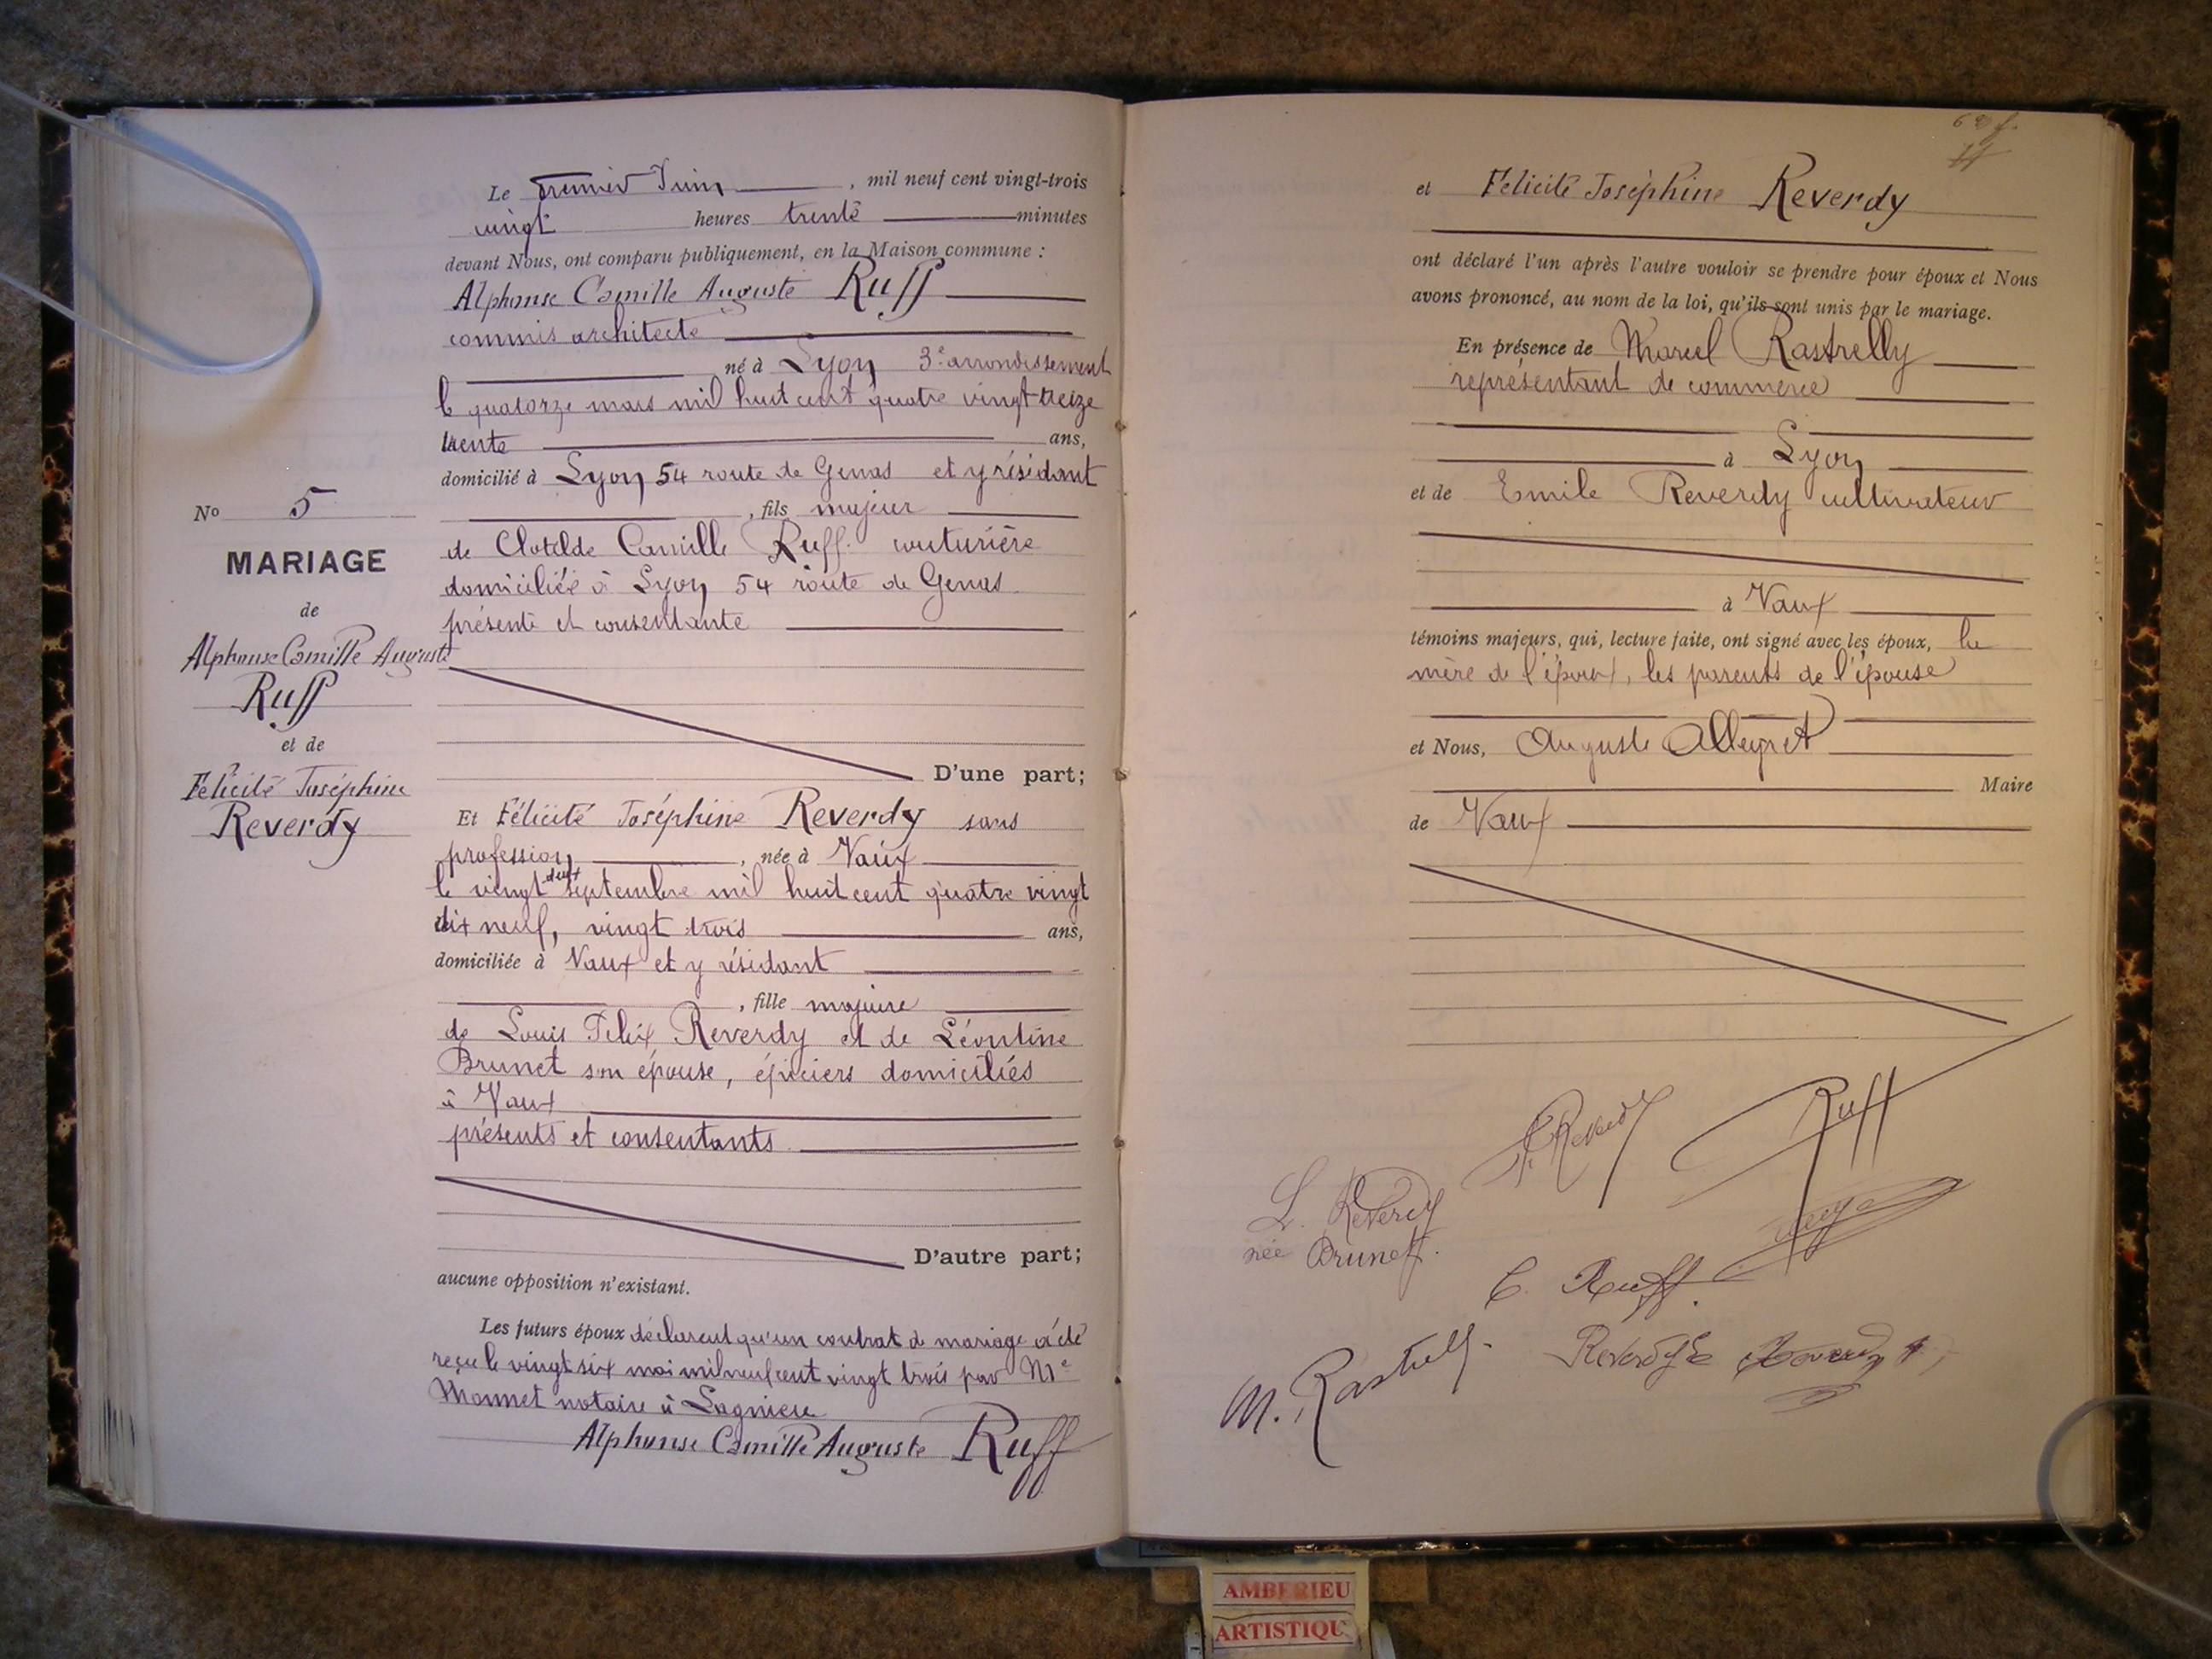 Le premier Juin , mil neuf cent vingt-trois
vingt heures trente minutes
devant Nous, ont comparu publiquement, en la Maison commune :
Alphonse Camille Auguste Ruff
commis architecte
né à Lyon 3e arrondissement
le quatorze mars mil huit cent quatre vingt treize
trente ans,
domicilié à Lyon 54 route de Genas et y résidant
, fils majeur
de Clotilde Camille Ruff couturière
domiciliée à Lyon 54 route de Genas
présente et consentante
D'une part;
No 5
MARIAGE
de
Alphonse Camille Auguste
Ruff
et de
Félicité Joséphine
Reverdy
Et Félicité Joséphine Reverdy sans
profession , née à Vaux
le vingt deux septembre mil huit cent quatre vingt
dix neuf, vingt trois ans,
domiciliée à Vaux et y résidant
, fille majeure
de Louis Félix Reverdy et de Léontine
Brunet son épouse, épiciers domiciliés
à Vaux
présents et consentants
D'autre part;
aucune opposition n'existant.
Les futurs époux déclarent qu'un contrat de mariage a été
reçu le vingt six mai mil neuf cent vingt trois par Me
Monnet notaire à Lagnieu
Alphonse Camille Auguste Ruff
et Félicité Joséphine Reverdy
ont déclaré l'un après l'autre vouloir se prendre pour époux et Nous
avons prononcé, au nom de la loi, qu'ils sont unis par le mariage.
En présence de Marcel Rastrelly
représentant de commerce
à Lyon
et de Emile Reverdy cultivateur
à Vaux
témoins majeurs, qui, lecture faite, ont signé avec les époux, la
mère de l'époux, les parents de l'épouse
et Nous, Auguste Alleyret
Maire
de Vaux
F. Reverdy Ruff
L. Reverdy
née Brunet.
C. Ruff.
M. Rastrelly Reverdy E
AMBERIEU
ARTISTIQU